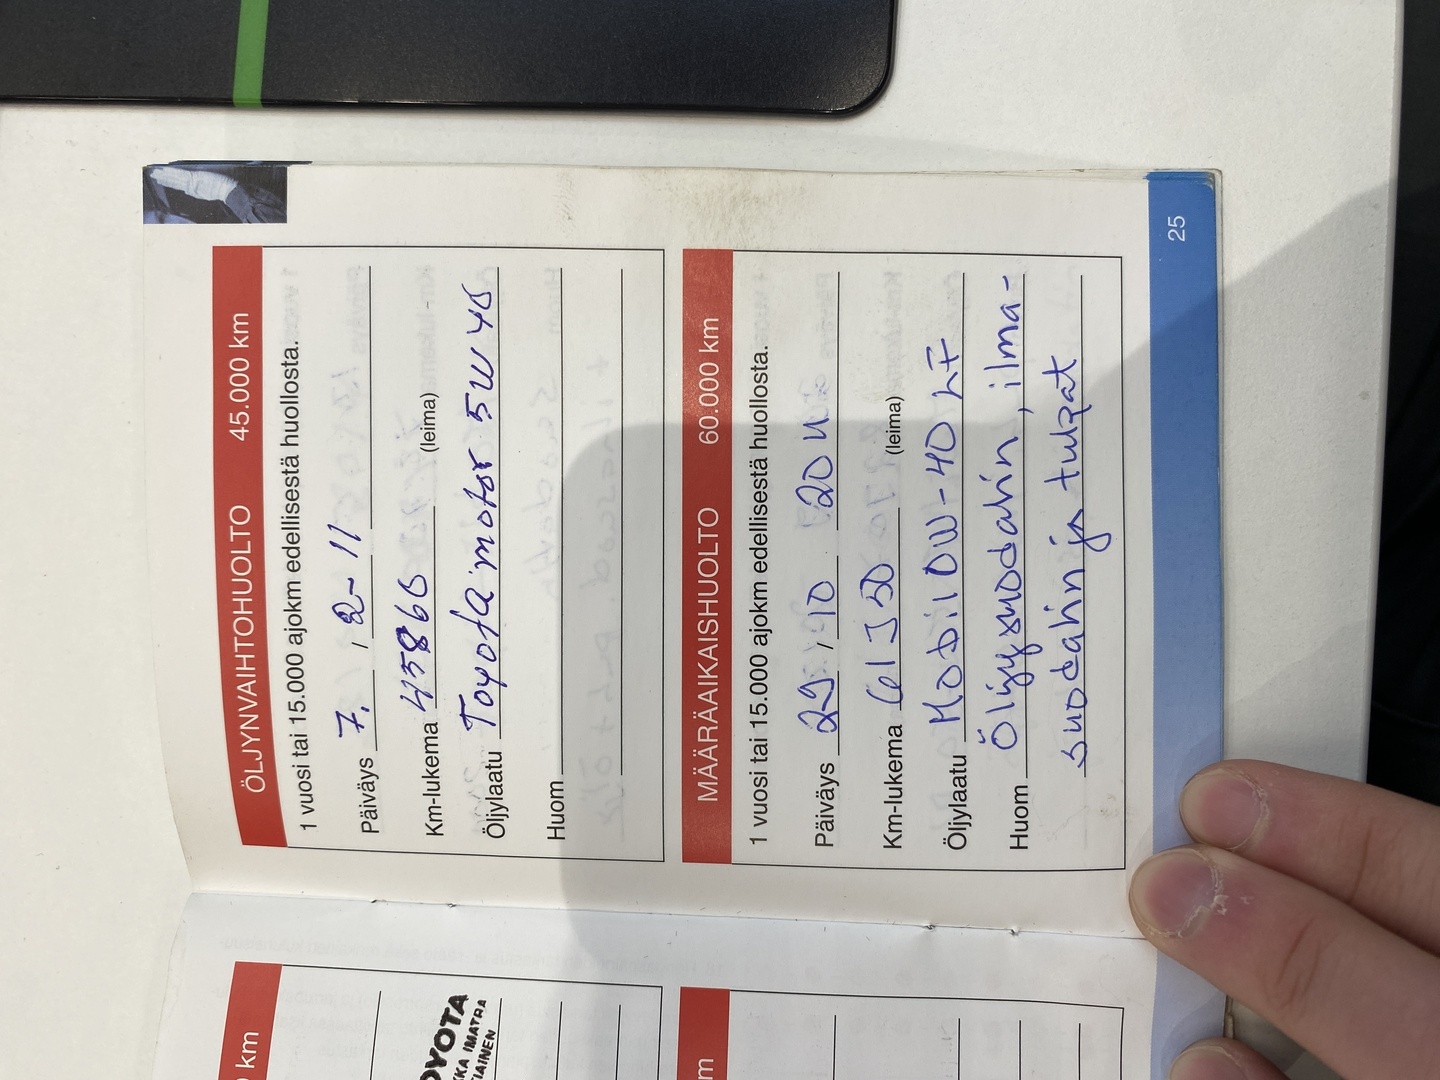 ÖLJYNVAIHTOHUOLTO 45.000 km
1 vuosi tai 15.000 ajokm edellisestä huollosta.
Päiväys 7. , 2-11
Km-lukema 45860 (leima)
Öljylaatu Toyota motor 5W40
Huom
MÄÄRÄAIKAISHUOLTO 60.000 km
1 vuosi tai 15.000 ajokm edellisestä huollosta.
Päiväys 29 , 10 2011
Km-lukema 61350 (leima)
Öljylaatu Mobil 0W-40 LF
Huom Öljynsuodatin, ilma-
suodatin ja tulpat
25
km
OYOTA
KKA IMATRA
TIAINEN
m